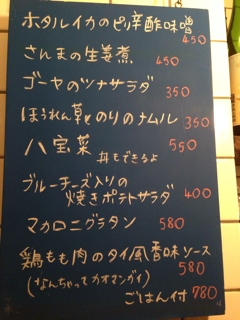 ホタルイカのピリ辛酢味噌
450
さんまの生姜煮 450
ゴーヤのツナサラダ 350
ほうれん草とのりのナムル 350
八宝菜 550
丼もできるよ
ブルーチーズ入りの
焼きポテトサラダ 400
マカロニグラタン 580
鶏もも肉のタイ風香味ソース
580
(なんちゃってカオマンガイ)
ごはん付 780